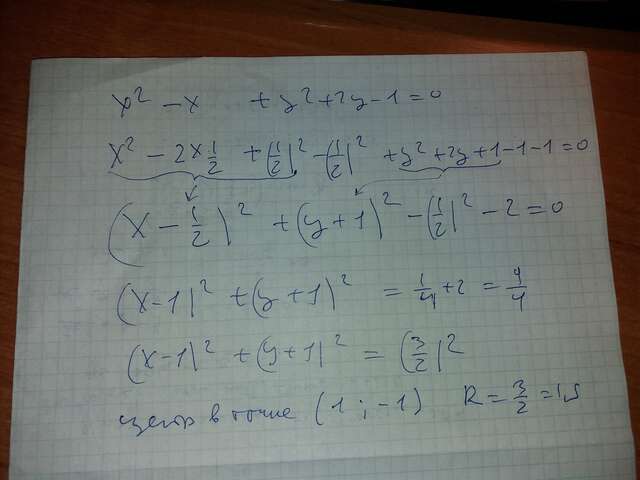 x² - x + y² + 2y - 1 = 0
x² - 2x 1/2 + (1/2)² - (1/2)² + y² + 2y + 1 - 1 - 1 = 0
(x - 1/2)² + (y + 1)² - (1/2)² - 2 = 0
(x - 1)² + (y + 1)² = 1/4 + 2 = 9/4
(x - 1)² + (y + 1)² = (3/2)²
центр в точке (1 ; -1) R = 3/2 = 1,5